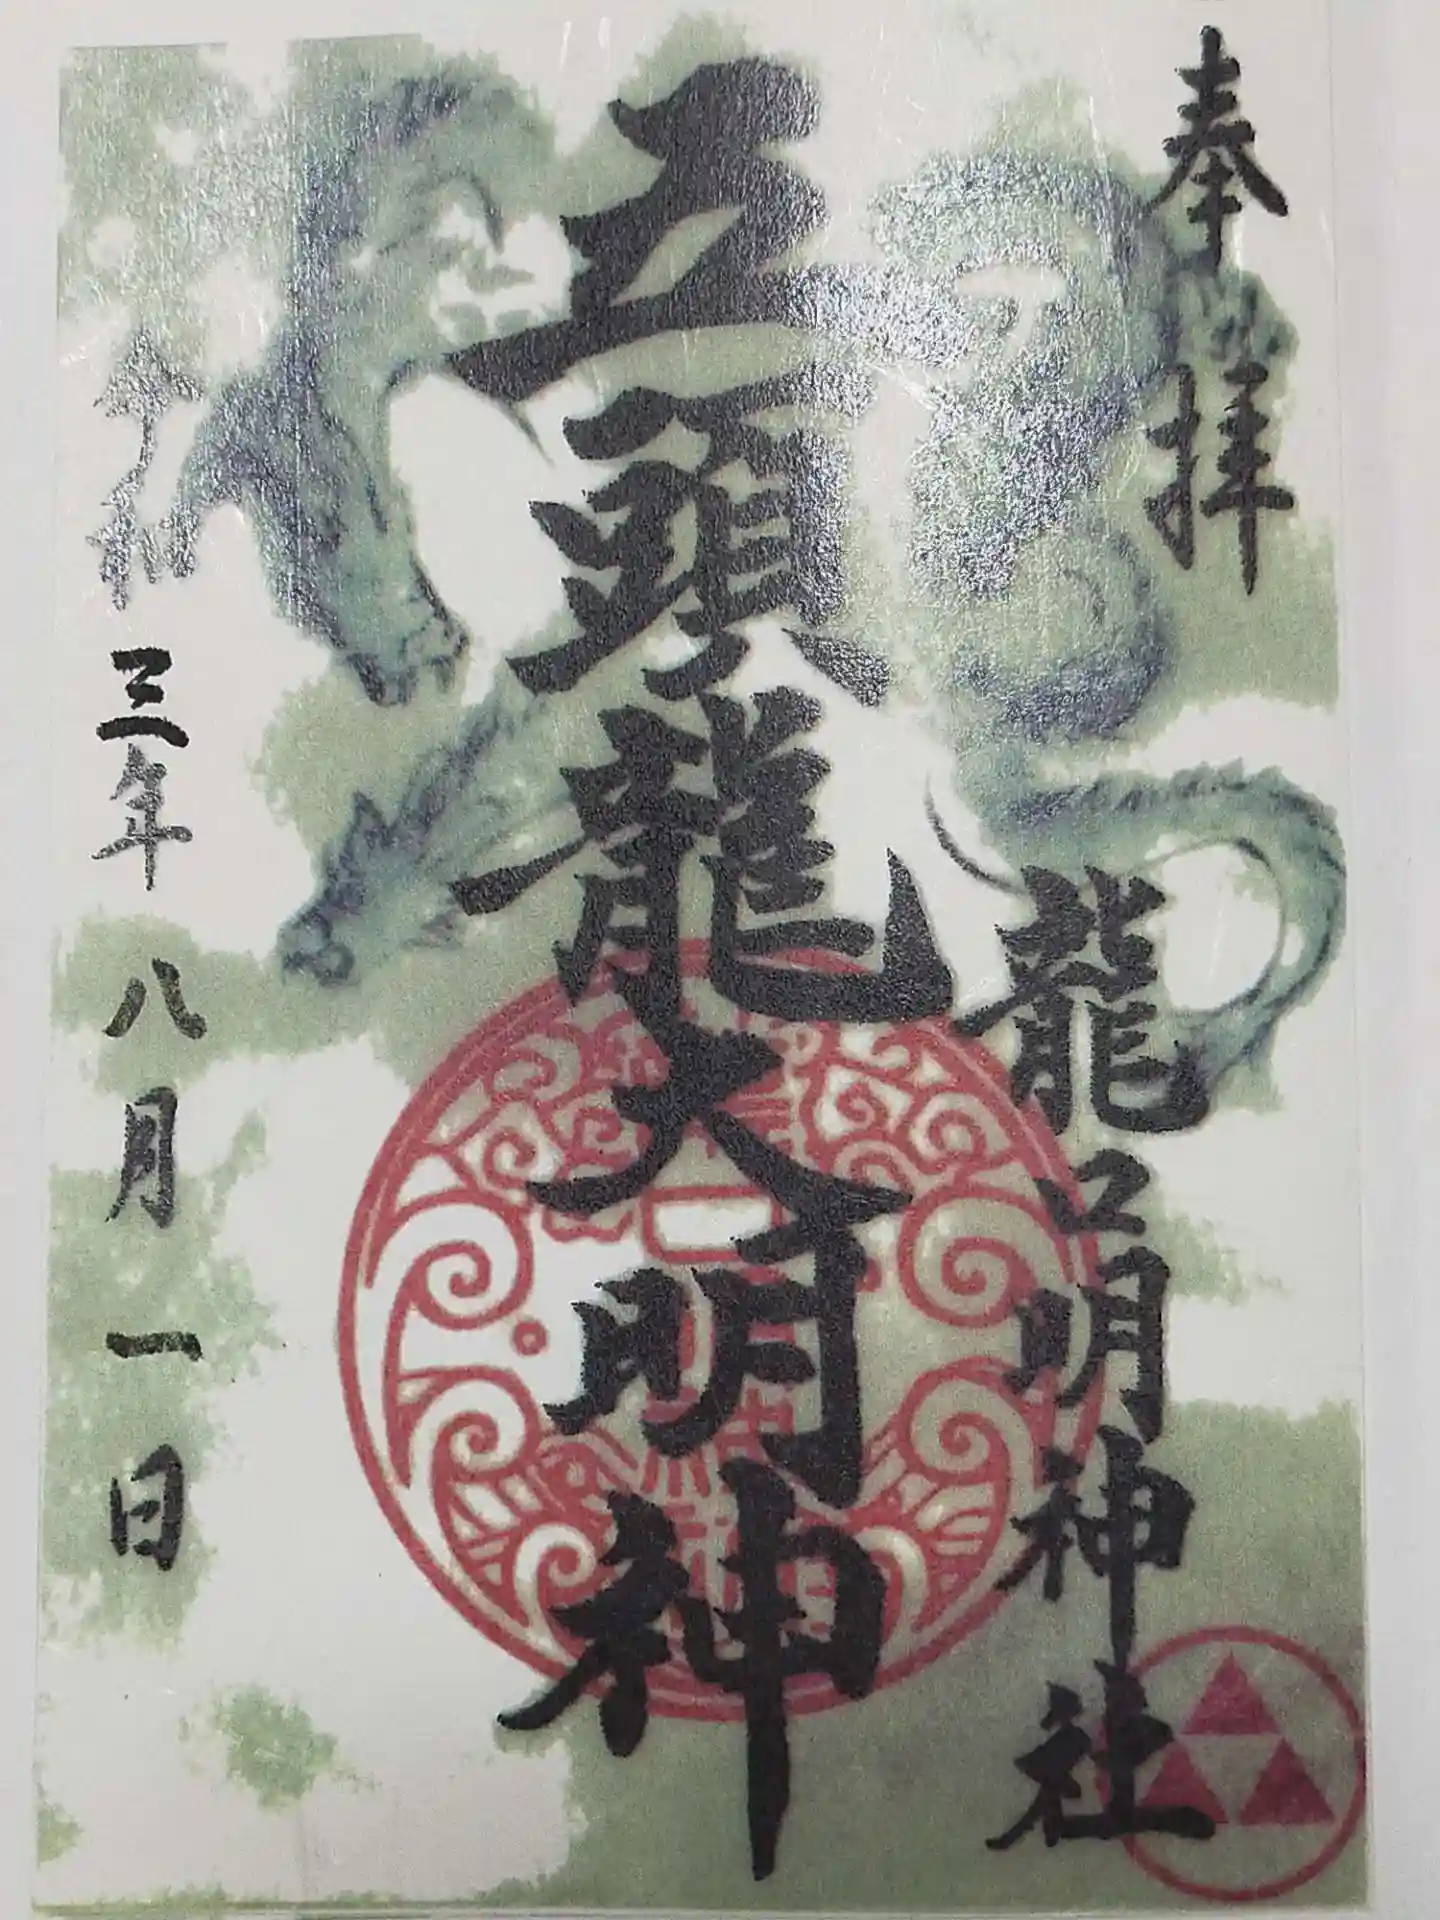 奉拝
龍口明神社
五頭龍大明神
令和三年八月一日